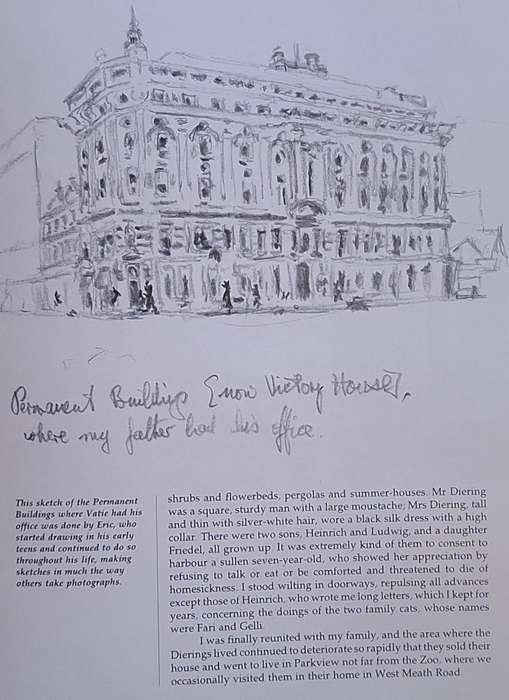 Permanent Buildings [now Victory House],
where my father had his office.
This sketch of the Permanent
Buildings where Vatie had his
office was done by Eric, who
started drawing in his early
teens and continued to do so
throughout his life, making
sketches in much the way
others take photographs.
shrubs and flowerbeds, pergolas and summer-houses. Mr Diering
was a square, sturdy man with a large moustache; Mrs Diering, tall
and thin with silver-white hair, wore a black silk dress with a high
collar. There were two sons, Heinrich and Ludwig, and a daughter
Friedel, all grown up. It was extremely kind of them to consent to
harbour a sullen seven-year-old, who showed her appreciation by
refusing to talk or eat or be comforted and threatened to die of
homesickness. I stood wilting in doorways, repulsing all advances
except those of Heinrich, who wrote me long letters, which I kept for
years, concerning the doings of the two family cats, whose names
were Fari and Gelli.
I was finally reunited with my family, and the area where the
Dierings lived continued to deteriorate so rapidly that they sold their
house and went to live in Parkview not far from the Zoo, where we
occasionally visited them in their home in West Meath Road.